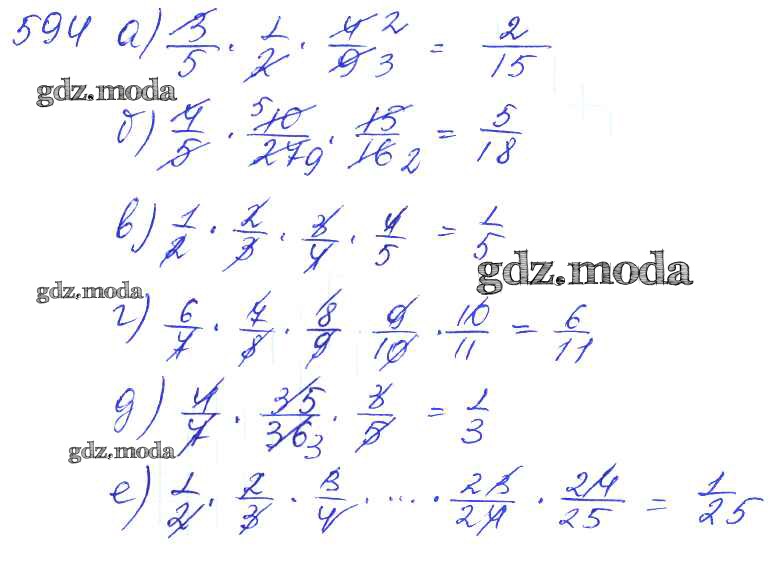 594 а) 3/5 · 1/2 · 4/9 2 3 = 2/15
gdz.moda
б) 4/5 · 5 10/27 9 · 15/16 2 = 5/18
в) 1/2 · 2/3 · 3/4 · 4/5 = 1/5
gdz.moda
gdz.moda
г) 6/7 · 7/8 · 8/9 · 9/10 · 10/11 = 6/11
д) 4/7 · 35/36 3 · 3/5 = 1/3
gdz.moda
е) 1/2 · 2/3 · 3/4 · ... · 23/24 · 24/25 = 1/25